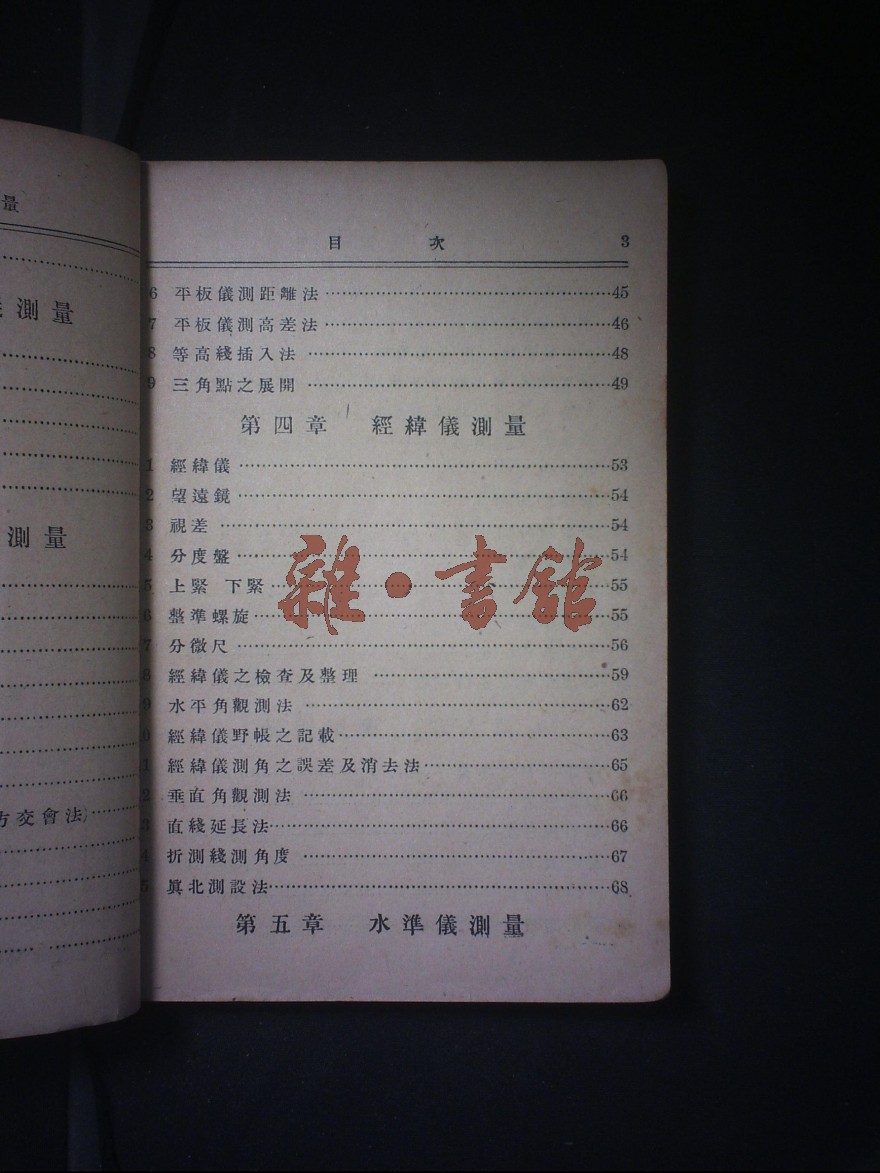 量
測量
測量
方交會法)
目 次 3
6 平板儀測距離法 45
7 平板儀測高差法 46
8 等高綫插入法 48
9 三角點之展開 49
第四章 經緯儀測量
1 經緯儀 53
2 望遠鏡 54
3 視差 54
4 分度盤 54
5 上緊 下緊 55
6 整準螺旋 55
7 分微尺 56
8 經緯儀之檢查及整理 59
9 水平角觀測法 62
0 經緯儀野帳之記載 63
1 經緯儀測角之誤差及消去法 65
2 垂直角觀測法 66
3 直綫延長法 66
4 折測綫測角度 67
5 眞北測設法 68
第五章 水準儀測量
雜·書館